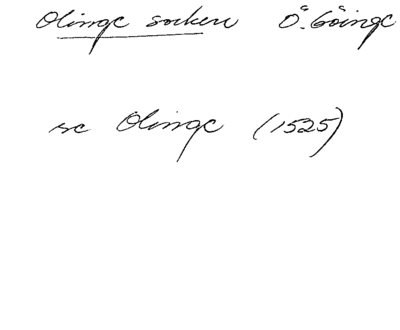 Olinge socken Ö. Göinge
se Olinge (1525)